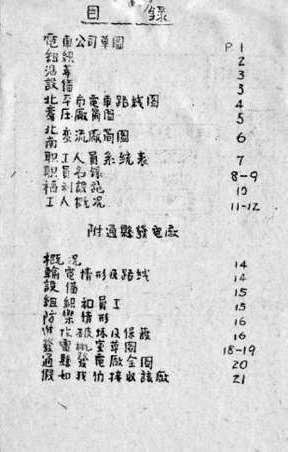 目錄
電車公司草圖 P.1
組織 2
沿革 3
設備 3
北平市電車路线圖 4
變圧廠簡圖 5
北南變流廠簡圖 6
职工人員系統表 7
职員名錄 8-9
福利設施 10
工人概况 11-12
附通縣發電廠
概况 14
輸電情形及路线 14
設備 15
組織和員工 15
防禦情形 16
破坏及保護 16
發電機室草圖 18-19
通縣發電廠全圖 20
假如我仿接收該廠 21